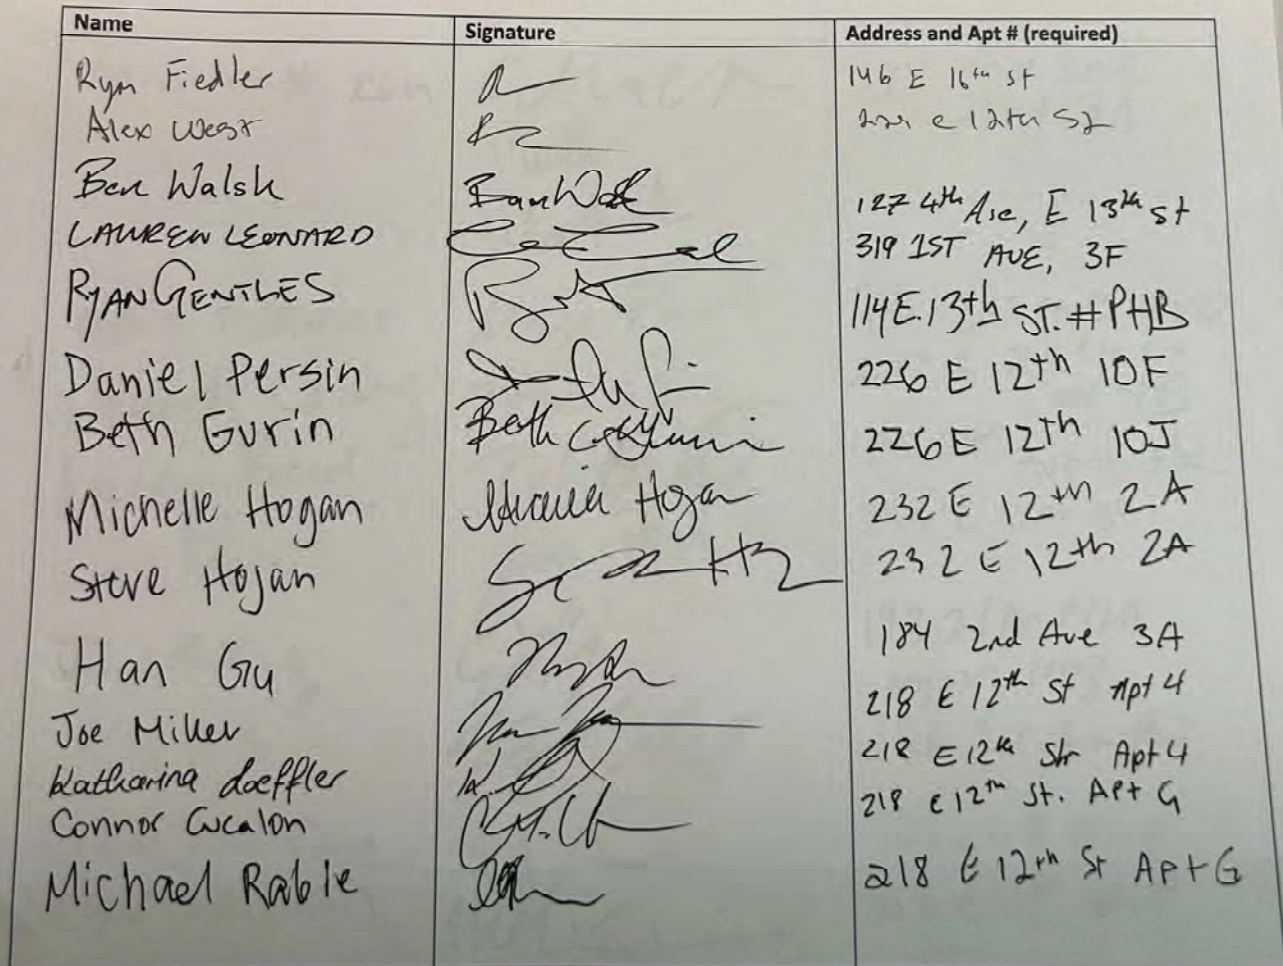 Name Signature Address and Apt # (required)
Ryan Fiedler 146 E 16th St
Alex West e 12th St
Ben Walsh Ben Walsh 127 4th Ave, E 13th St
LAUREN LEONARD 319 1ST AVE, 3F
RYAN GENTLES 114 E. 13th ST. #PHB
Daniel Persin 226 E 12th 10F
Beth Gurin Beth 226 E 12th 10J
Michelle Hogan Hogan 232 E 12th 2A
Steve Hogan 232 E 12th 2A
Han Gu 184 2nd Ave 3A
Joe Miller 218 E 12th St Apt 4
Katharina doeffler 218 E 12th Str Apt 4
Connor Cucalon 218 e 12th St. Apt G
Michael Rable 218 E 12th St Apt G